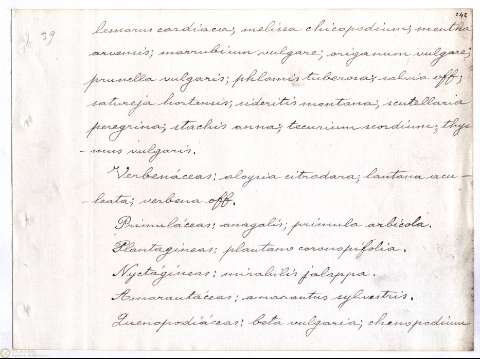 242
39
lemarus cardiaca; melissa chicopodium; mentha
arvensis; marrubium vulgare; origanum vulgare;
prunella vulgaris; phlomis tuberosa; salvia off;
satureja hortensis; sideritis montana; scutellaria
peregrina; stachis anna; tecurium scordium; thy-
mus vulgaris.
Verbenáceas; aloysia citrodara; lantana acu-
leata; verbena off.
Primuláceas; anagalis; primula arbicola.
Plantagineas; plantano coronopifolia.
Nyctagineas; mirabilis jalappa.
Amarautáceas; amarantus sylvestris.
Quenopodiáceas; beta vulgaria; chenopodium